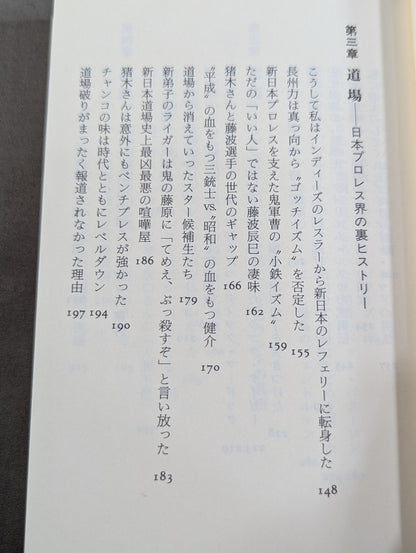 第三章 道場――日本プロレス界の裏ヒストリー
こうして私はインディーズのレスラーから新日本のレフェリーに転身した 148
長州力は真っ向から〝ゴッチイズム〟を否定した 155
新日本プロレスを支えた鬼軍曹の〝小鉄イズム〟 159
ただの「いい人」ではない藤波辰巳の凄味 162
猪木さんと藤波選手の世代のギャップ 166
〝平成〟の血をもつ三銃士vs.〝昭和〟の血をもつ健介 170
道場から消えていったスター候補生たち 179
新弟子のライガーは鬼の藤原に「てめえ、ぶっ殺すぞ」と言い放った 183
新日本道場史上最凶最悪の喧嘩屋 186
猪木さんは意外にもベンチプレスが強かった 190
チャンコの味は時代とともにレベルダウン 194
道場破りがまったく報道されなかった理由 197